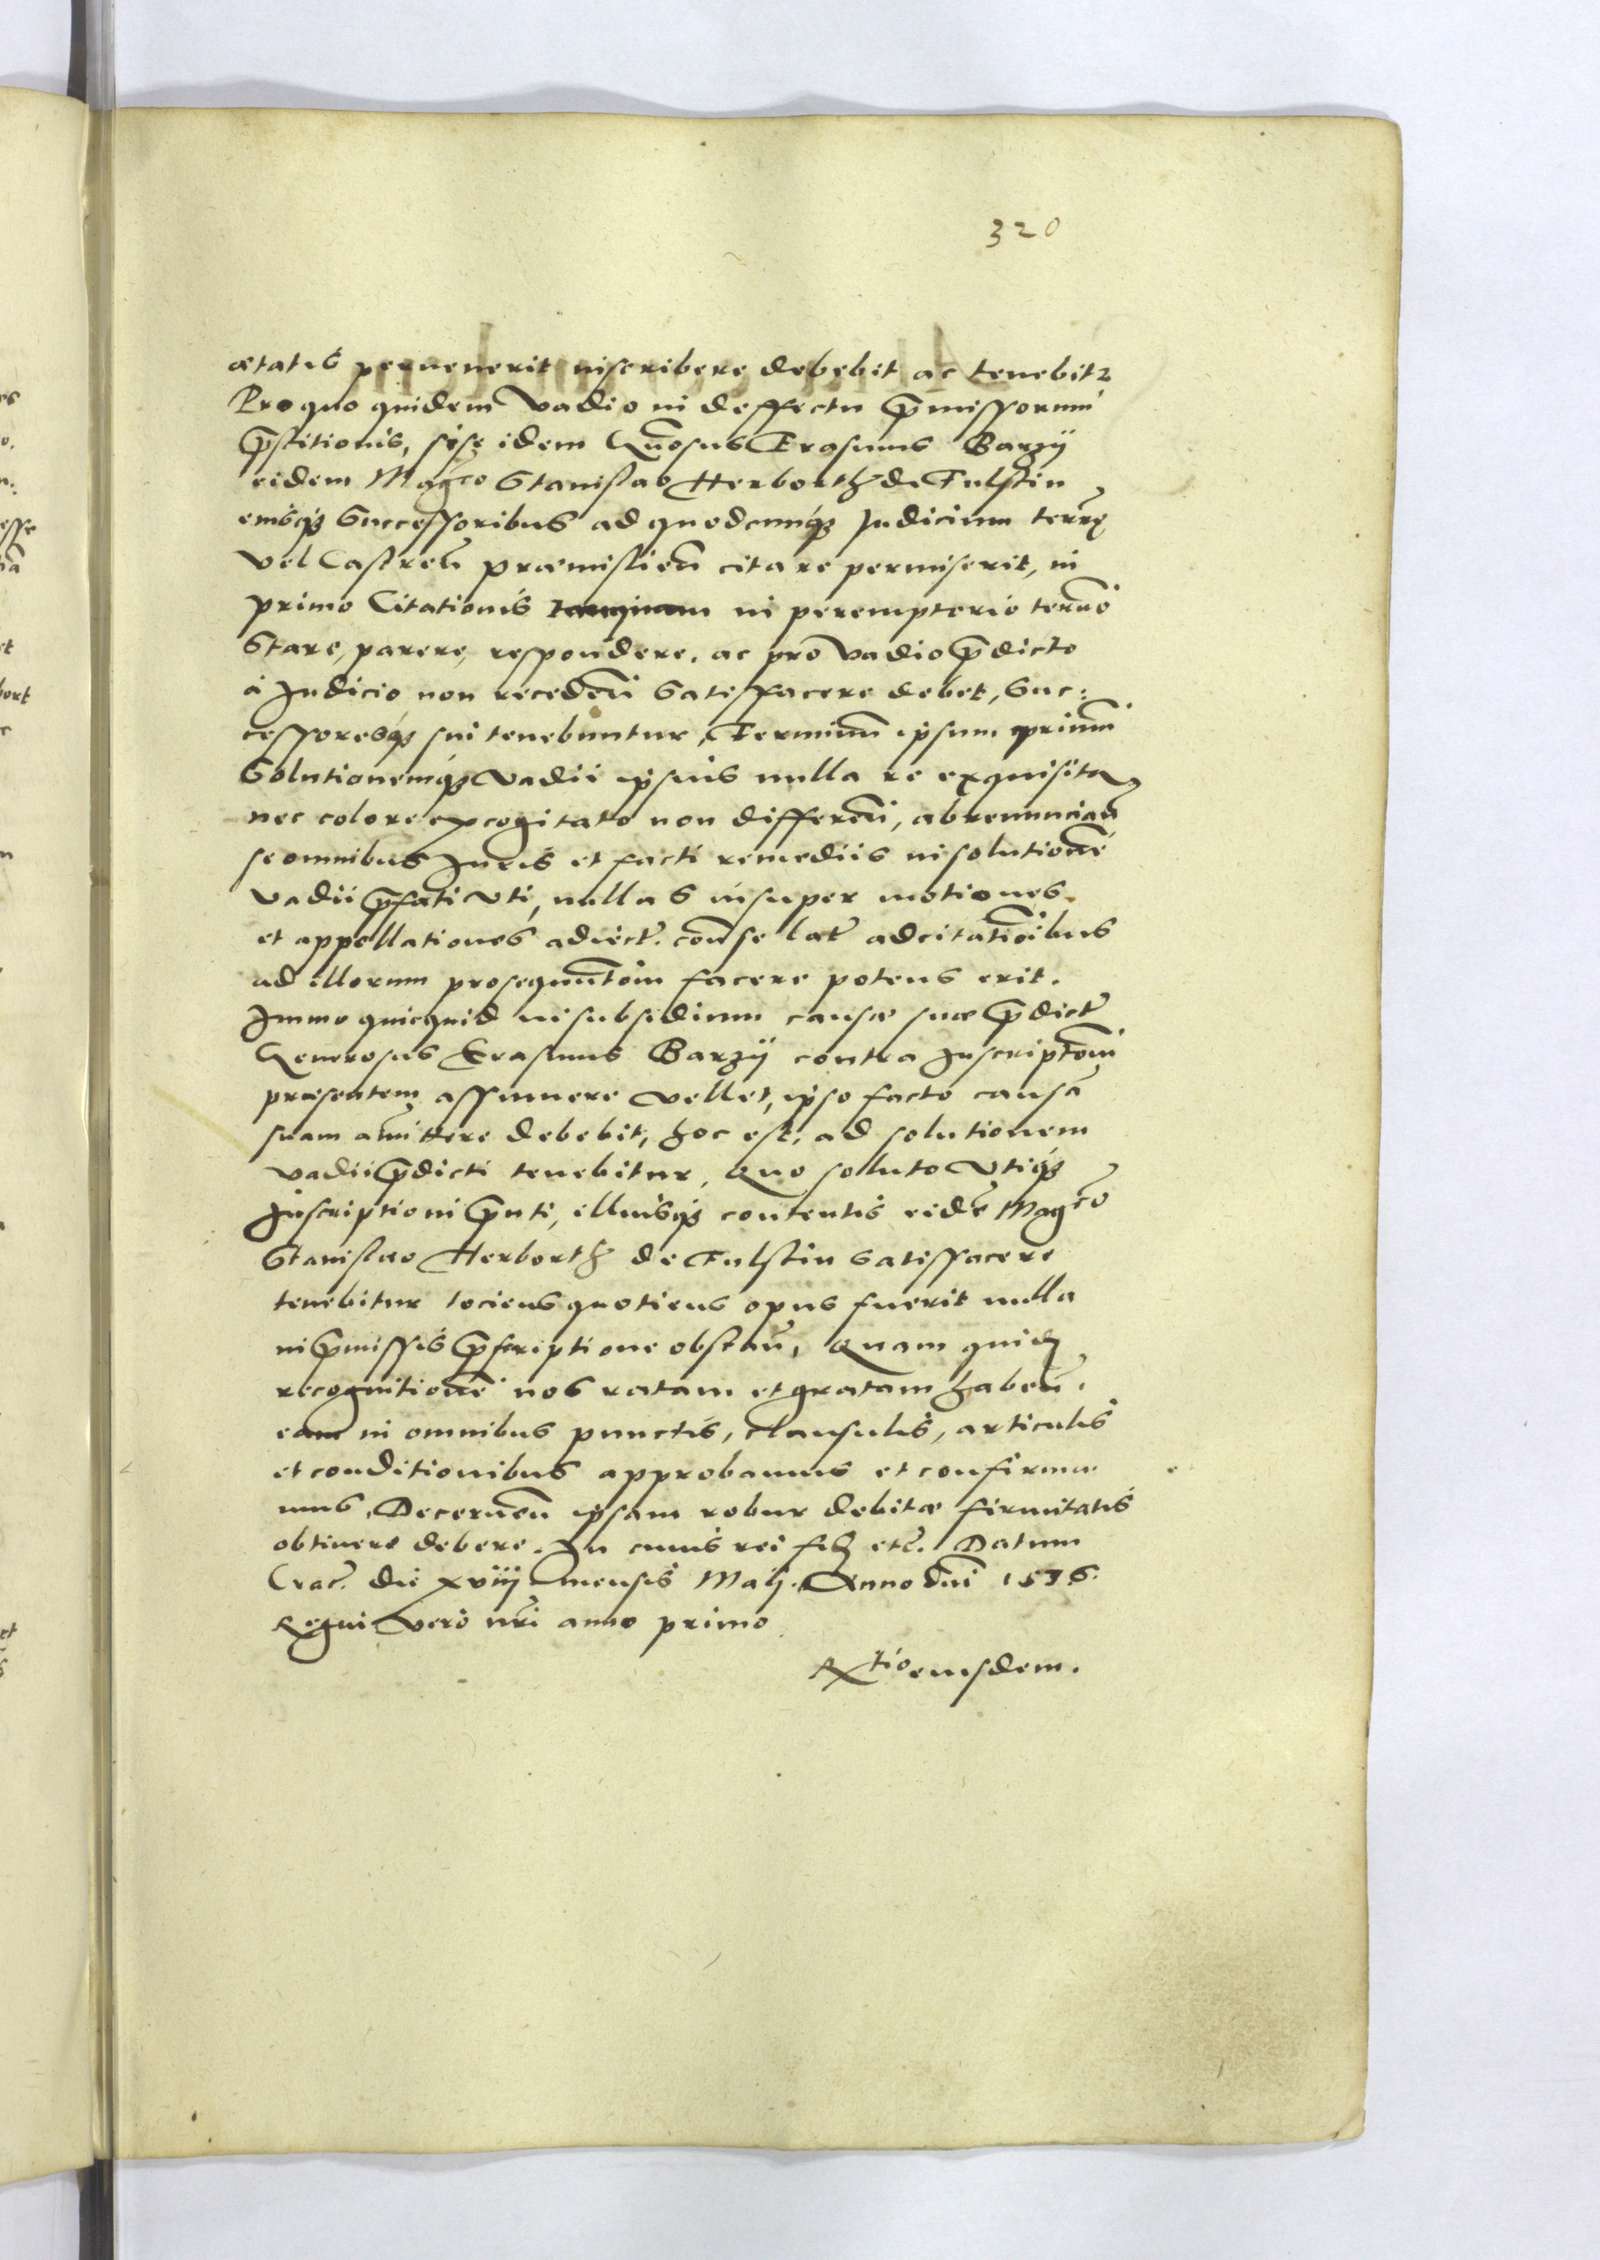 320
ætatis peruenerit inscribere debebit ac tenebitr
Pro quo quidem Vadio in deffectu p̄missorum
p̄stitionis, si se idem Gn̄osus Erasmus Barzij
eidem Magco Stanislao Herborth de Fulstin
eiusq3 Successoribus ad quodcunq3 Judicium terrę
vel Castren̄ præmistien̄ citare permiserit, in
primo Citationis tanquam in peremptorio termō
Stare, parere, respondere, ac pro vadio p̄dicto
à Judicio non receden̄ Satisfacere debet, Suc:
cessoresq3 sui tenebuntur, Terminum ipsum primum
Solutionemq3 Vadii ipsius nulla re exquisita,
nec colore excogitato non differen̄, abrenuncian̄
se omnibus Juris et facti remediis in solutione
vadii p̄fati vti, nullas insuper motiones
et appellationes adiect. contra se lat ad citationibus
ad illorum prosequutoīm facere potens erit.
Immo quicquid in subsidium causæ suæ p̄dict
Generosus Erasmus Barzij contra Inscriptoīm
præsentem assumere vellet, ipso facto causā
suam amittere debebit, hoc est, ad solutionem
vadii p̄dicti tenebitur, Quo soluto vtiq3
Inscriptioni p̄nti, illiusq3 contentis eidē Magco
Stanislao Herborth de Fulstin satisfacere
tenebitur tociens quotiens opus fuerit nulla
in p̄missis p̄scriptione obstan̄, Quam quid
recognitionē nos ratam et gratam haben̄.
eam in omnibus punctis, clausulis, articulis
et conditionibus approbamus et confirma
mus, Decernen̄ ipsam robur debitæ firmitatis
obtinere debere. In cuius rei fid etc. Datum
Crac. die xviij mensis Maij. Anno dn̄i 1536.
Regni vero nr̄i anno primo
Rtio eiusdem.